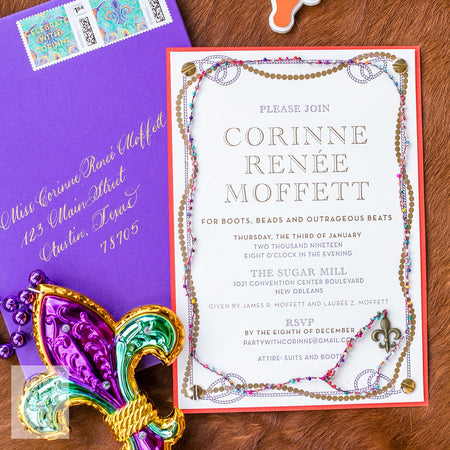 CELEBRATE
WITH
CORINNE
Miss Corinne Renée Moffett
123 Main Street
Austin, Texas
78705
PLEASE JOIN
CORINNE
RENÉE
MOFFETT
FOR BOOTS, BEADS AND OUTRAGEOUS BEATS
THURSDAY, THE THIRD OF JANUARY
TWO THOUSAND NINETEEN
EIGHT O'CLOCK IN THE EVENING
THE SUGAR MILL
1021 CONVENTION CENTER BOULEVARD
NEW ORLEANS
GIVEN BY JAMES R. MOFFETT AND LAURÉE Z. MOFFETT
RSVP
BY THE EIGHTH OF DECEMBER
PARTYWITHCORINNE@GMAIL
ATTIRE: SUITS AND BOOTS